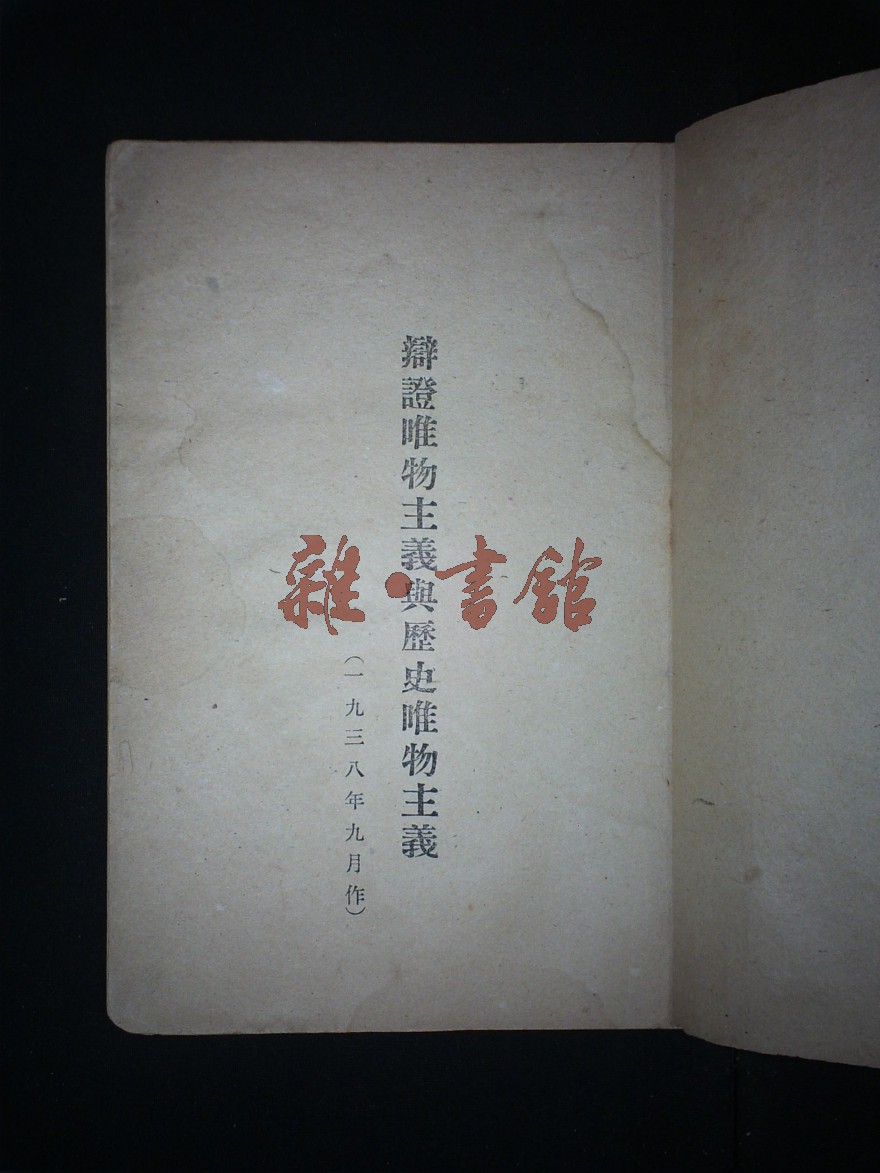 辯證唯物主義與歷史唯物主義
（一九三八年九月作）
雜·書館